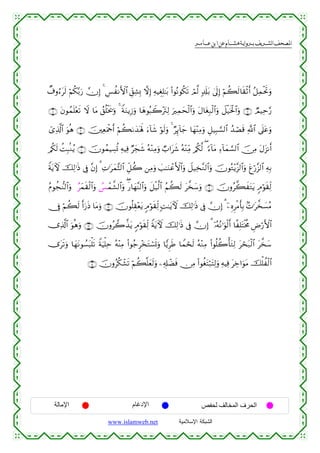 المصحف الشريف برواية هشام عن ابن عامر
وَتَحْمِلُ أَثْقَالَكُمْ إِلَىٰ بَلَدٍ لَّمْ تَكُونُوا۟ بَٰلِغِيهِ إِلَّا بِشِقِّ ٱلْأَنفُسِ ۚ إِنَّ رَبَّكُمْ لَرَءُوفٌ
رَّحِيمٌ ﴿٧﴾ وَٱلْخَيْلَ وَٱلْبِغَالَ وَٱلْحَمِيرَ لِتَرْكَبُوهَا وَزِينَةً ۚ وَيَخْلُقُ مَا لَا تَعْلَمُونَ ﴿٨﴾
وَعَلَى ٱللَّهِ قَصْدُ ٱلسَّبِيلِ وَمِنْهَا جَآئِرٌ ۚ وَلَوْ شَآءَ لَهَدَىٰكُمْ أَجْمَعِينَ ﴿٩﴾ هُوَ ٱلَّذِىٓ
أَنزَلَ مِنَ ٱلسَّمَآءِ مَآءً ۖ لَّكُم مِّنْهُ شَرَابٌ وَمِنْهُ شَجَرٌ فِيهِ تُسِيمُونَ ﴿١٠﴾ يُنۢبِتُ لَكُم
بِهِ ٱلزَّرْعَ وَٱلزَّيْتُونَ وَٱلنَّخِيلَ وَٱلْأَعْنَٰبَ وَمِن كُلِّ ٱلثَّمَرَٰتِ ۗ إِنَّ فِى ذَٰلِكَ لَءَايَةً
لِّقَوْمٍ يَتَفَكَّرُونَ ﴿١١﴾ وَسَخَّرَ لَكُمُ ٱلَّيْلَ وَٱلنَّهَارَ ۖ وَٱلشَّمْسُ وَٱلْقَمَرُ ۖ وَٱلنُّجُومُ
مُسَخَّرَٰتٌۢ بِأَمْرِهِۦٓ ۗ إِنَّ فِى ذَٰلِكَ لَءَايَٰتٍ لِّقَوْمٍ يَعْقِلُونَ ﴿١٢﴾ وَمَا ذَرَأَ لَكُمْ فِى
ٱلْأَرْضِ مُخْتَلِفًا أَلْوَٰنُهُۥٓ ۗ إِنَّ فِى ذَٰلِكَ لَءَايَةً لِّقَوْمٍ يَذَّكَّرُونَ ﴿١٣﴾ وَهُوَ ٱلَّذِى
سَخَّرَ ٱلْبَحْرَ لِتَأْكُلُوا۟ مِنْهُ لَحْمًا طَرِيًّا وَتَسْتَخْرِجُوا۟ مِنْهُ حِلْيَةً تَلْبَسُونَهَا وَتَرَى
ٱلْفُلْكَ مَوَاخِرَ فِيهِ وَلِتَبْتَغُوا۟ مِن فَضْلِهِۦ وَلَعَلَّكُمْ تَشْكُرُونَ ﴿١٤﴾
الحرف المخالف لحفص الإدغام الإمالة
الشبكة الإسلامية www.islamweb.net